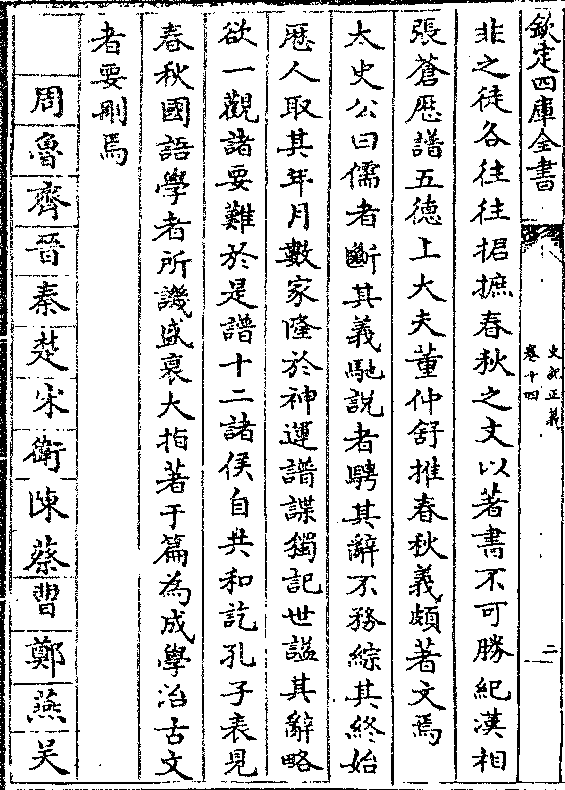 欽定四庫全書
史記正義
卷十四
二
非之徒各往往捃摭春秋之文以著書不可勝紀漢相
張蒼歴譜五德上大夫董仲舒推春秋義頗著文焉
太史公曰儒者斷其義馳說者騁其辭不務綜其終始
歴人取其年月數家隆於神運譜諜獨記世謚其辭略
欲一觀諸要難於是譜十二諸侯自共和訖孔子表見
春秋國語學者所譏盛衰大指著于篇為成學治古文
者要刪焉
周魯齊晉秦楚宋衛陳蔡曹鄭燕吳